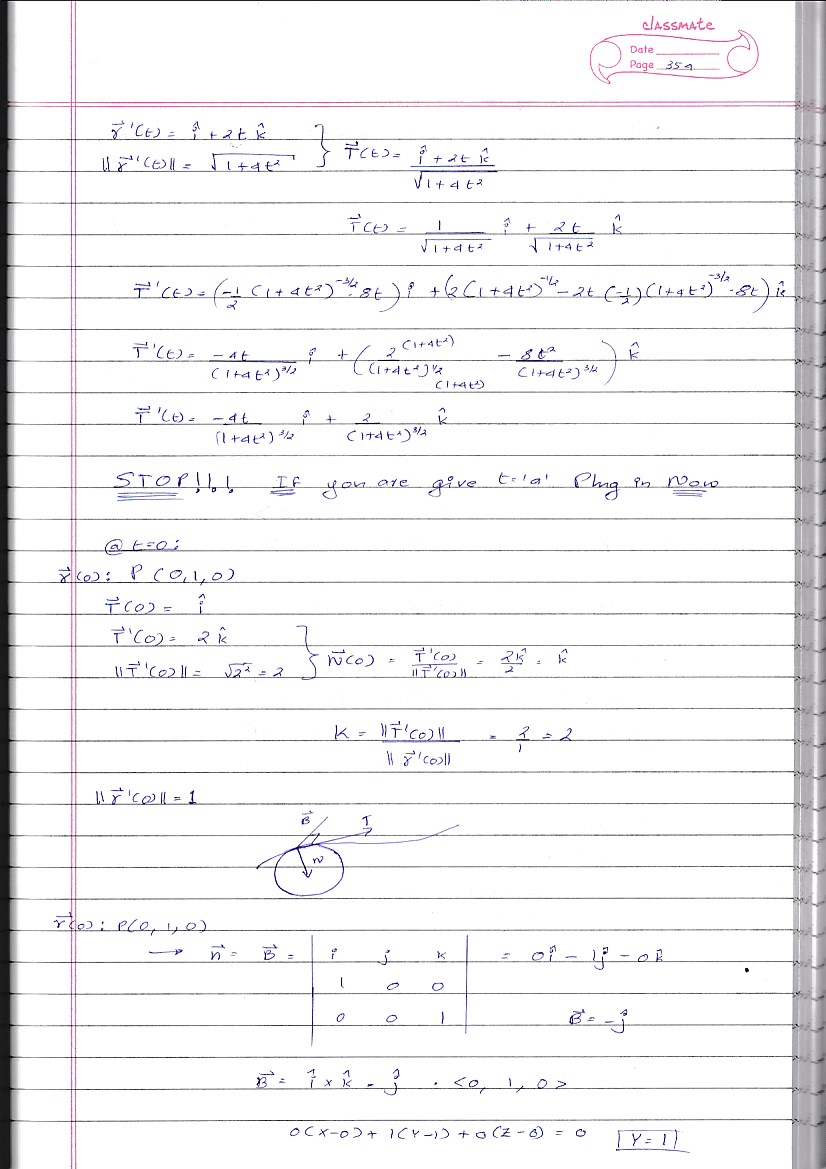 classmate
Date
Page 359
r⃗'(t) = î + 2t k̂
||r⃗'(t)|| = √(1+4t²) } T⃗(t) = (î + 2t k̂)/√(1+4t²)
T⃗(t) = 1/√(1+4t²) î + 2t/√(1+4t²) k̂
T⃗'(t) = (-1/2 (1+4t²)^(-3/2) · 8t) î + (2(1+4t²)^(-1/2) - 2t (-1/2)(1+4t²)^(-3/2) · 8t) k̂
T⃗'(t) = -4t/(1+4t²)^(3/2) î + (2 (1+4t²)/((1+4t²)^(1/2) (1+4t²)) - 8t²/(1+4t²)^(3/2)) k̂
T⃗'(t) = -4t/(1+4t²)^(3/2) î + 2/(1+4t²)^(3/2) k̂
STOP!!!! If you are give t='a' Plug in Now
@ t=0:
r⃗(0): P(0,1,0)
T⃗(0) = î
T⃗'(0) = 2 k̂
||T⃗'(0)|| = √2² = 2 } N⃗(0) = T⃗'(0)/||T⃗'(0)|| = 2k̂/2 = k̂
K = ||T⃗'(0)||/||r⃗'(0)|| = 2/1 = 2
||r⃗'(0)|| = 1
B⃗ T
N
r⃗(0): P(0,1,0)
→ n⃗ = B⃗ = | i j k | = 0î - 1ĵ - 0k̂
1 0 0
0 0 1 B⃗ = -ĵ
B⃗ = î × k̂ - ĵ · <0, 1, 0>
0(X-0) + 1(Y-1) + 0(Z-0) = 0 Y=1